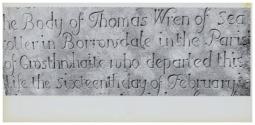 he Body of Thomas Wren of Sea
oller in Borrowsdale in the Paris
of Crosthwaite who departed this
Life the sixteenth day of February